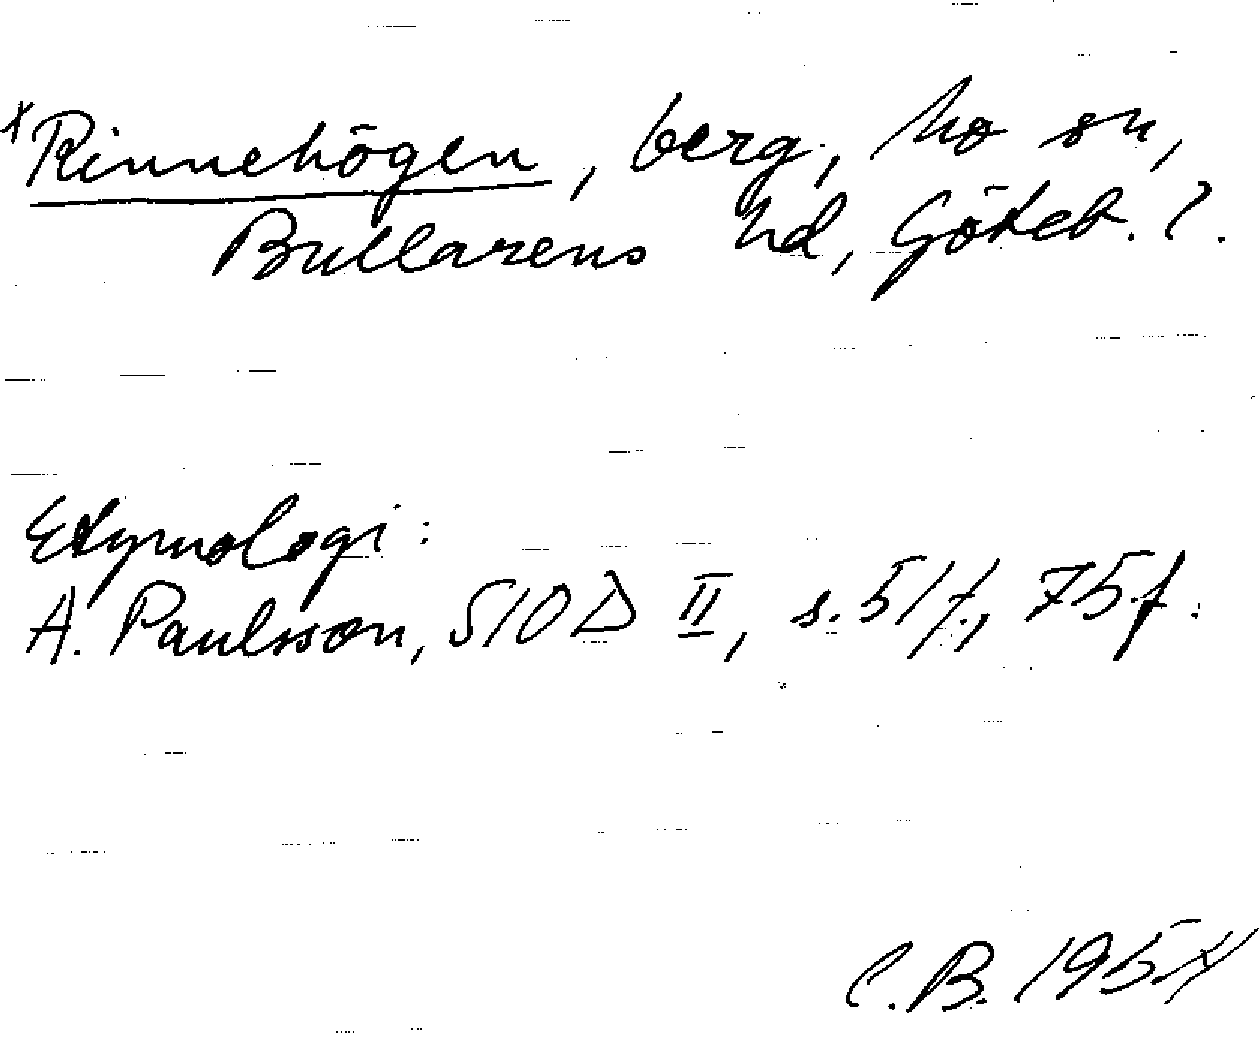 *Rinnehögen, berg, Mo sn,
Bullarens hd, Göteb. l.
Etymologi:
A. Paulsson, SIOD II, s. 51f., 75f.
C.B. 1954